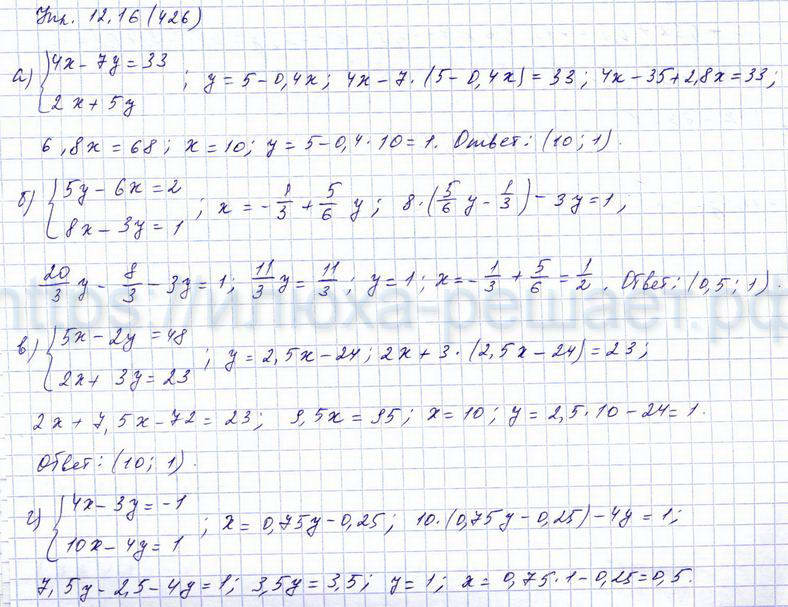 Упр. 12.16 (426)
а) { 4x - 7y = 33
2x + 5y ; y = 5 - 0,4x; 4x - 7·(5 - 0,4x) = 33; 4x - 35 + 2,8x = 33;
6,8x = 68; x = 10; y = 5 - 0,4·10 = 1. Ответ: (10; 1).
б) { 5y - 6x = 2
8x - 3y = 1 ; x = -1/3 + 5/6 y; 8·(5/6 y - 1/3) - 3y = 1,
20/3 y - 8/3 - 3y = 1; 11/3 y = 11/3; y = 1; x = -1/3 + 5/6 = 1/2. Ответ: (0,5; 1).
https://илюха-решает.рф
в) { 5x - 2y = 48
2x + 3y = 23 ; y = 2,5x - 24; 2x + 3·(2,5x - 24) = 23;
2x + 7,5x - 72 = 23; 9,5x = 95; x = 10; y = 2,5·10 - 24 = 1.
Ответ: (10; 1).
г) { 4x - 3y = -1
10x - 4y = 1 ; x = 0,75y - 0,25; 10·(0,75y - 0,25) - 4y = 1;
7,5y - 2,5 - 4y = 1; 3,5y = 3,5; y = 1; x = 0,75·1 - 0,25 = 0,5.